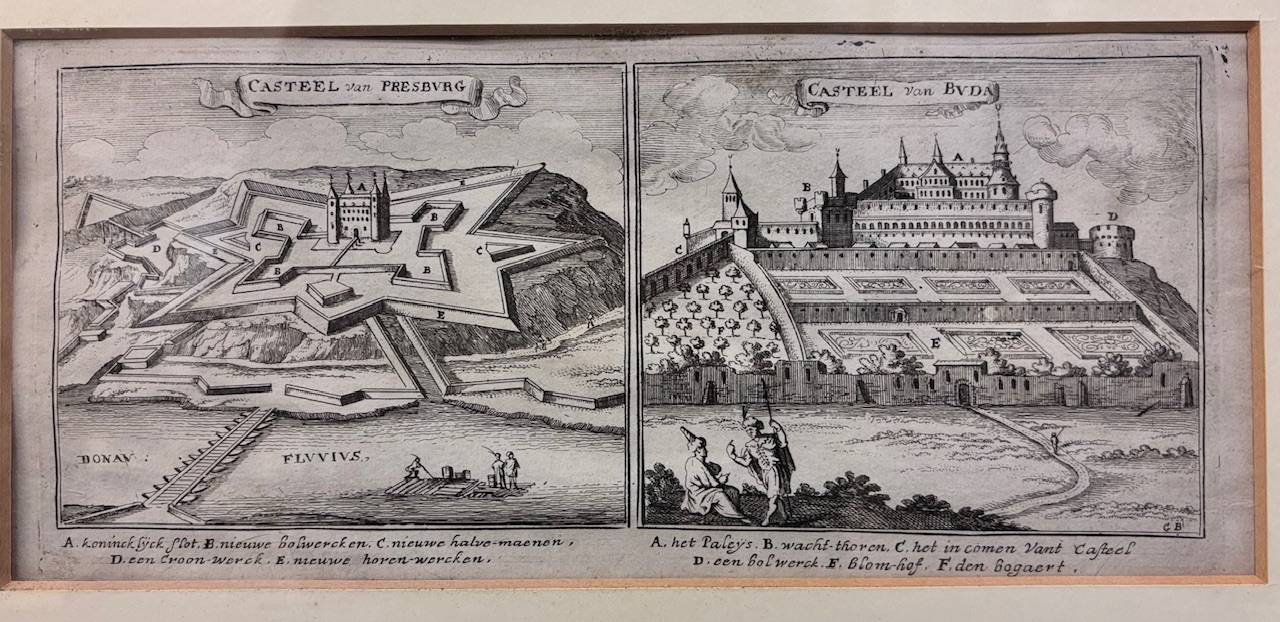 CASTEEL van PRESBVRG
A
E
B
B
C
C
D
E
B
B
E
DONAV:
FLVVIVS,
A. konincklÿck slot. B. nieuwe bolwercken. C. nieuwe halve-maenen,
D. een Croon-werck. E. nieuwe horen-wercken.
CASTEEL van BVDA
A
B
D
C
F
E
CB
A. het Paleÿs. B. wacht-thoren. C. het in comen Vant Casteel
D. een bolwerck. E. Blom-hof. F. den bogaert.